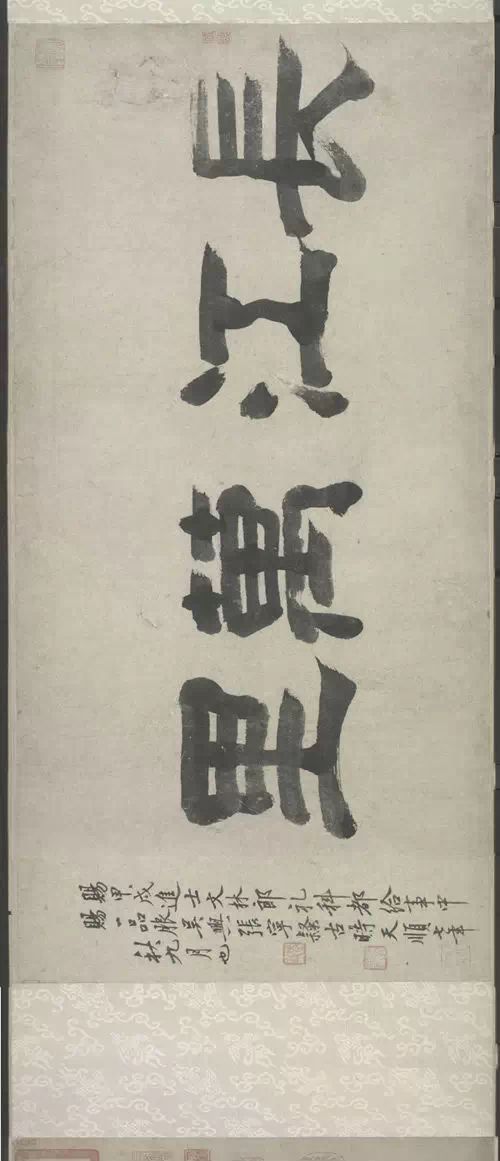 長江萬里
賜甲戌進士文林郎礼科都給事中
賜一品服吳興張寧隸古時天順七年
秋九月也